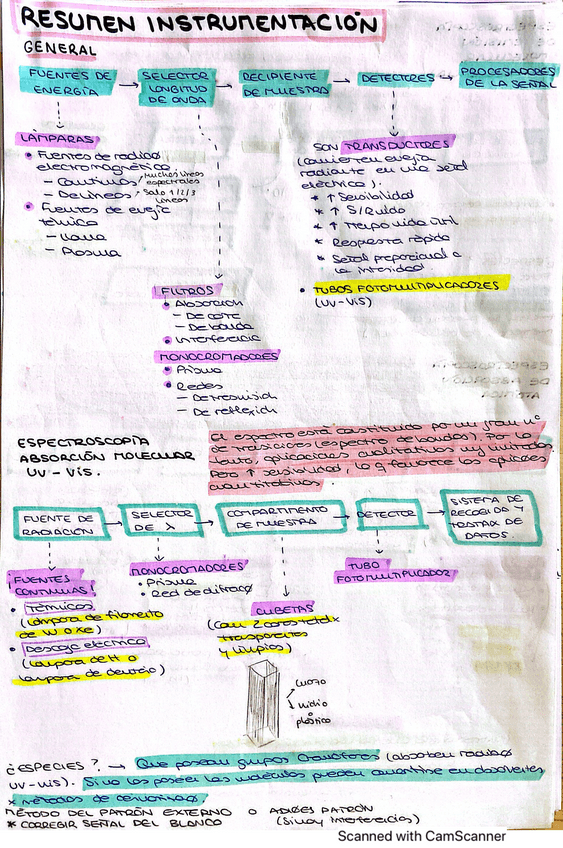 RESUMEN INSTRUMENTACIÓN
GENERAL
FUENTES DE ENERGÍA → SELECTOR LONGITUD DE ONDA → RECIPIENTE DE MUESTRA → DETECTORES → PROCESADORES DE LA SEÑAL
LÁMPARAS
• Fuentes de radiac
electromagnética
- Continuas / Muchas líneas espectrales
- De líneas / Solo 1/2/3 líneas
• Fuentes de energía
térmica
- Llama
- Plasma
SON TRANSDUCTORES
(convierten energía
radiante en una señal
eléctrica).
* ↑ Sensibilidad
* ↑ S/Ruido
* ↑ Tiempo vida útil
* Respuesta rápida
* Señal proporcional a
la intensidad
• TUBOS FOTOMULTIPLICADORES
(UV-VIS)
FILTROS
• Absorción
- De corte
- De banda
• Interferencia
MONOCROMADORES
• Prisma
• Redes
- De transmisión
- De reflexión
ESPECTROSCOPÍA
ABSORCIÓN MOLECULAR
UV-VIS.
El espectro está constituido por un gran nº
de transiciones (espectro de bandas). Por lo
tanto, aplicaciones cualitativas muy limitadas
Pero ↑ sensibilidad, lo q favorece las aplicac
cuantitativas.
FUENTE DE RADIACIÓN → SELECTOR DE λ → COMPARTIMENTO DE MUESTRA → DETECTOR → SISTEMA DE RECOGIDA Y TRATAM DE DATOS.
¡FUENTES
CONTINUAS!
• Térmicas
(lámpara de filamento
de W o Xe)
• Descarga eléctrica
(lámpara de H o
lámpara de deuterio)
MONOCROMADORES
• Prisma
• Red de difracç
CUBETAS
(Con 2 caras
trasparentes
y limpias)
cuarzo
vidrio
plástico
TUBO
FOTOMULTIPLICADOR
¿ESPECIES? → Que posean grupos cromóforos (absorben radiac
UV-vis). Si no los poseen las moléculas pueden convertirse en absorventes
x métodos de derivatizac.
MÉTODO DEL PATRÓN EXTERNO O ADICIÓES PATRÓN
* CORREGIR SEÑAL DEL BLANCO (Si hay interferencias)
Scanned with CamScanner